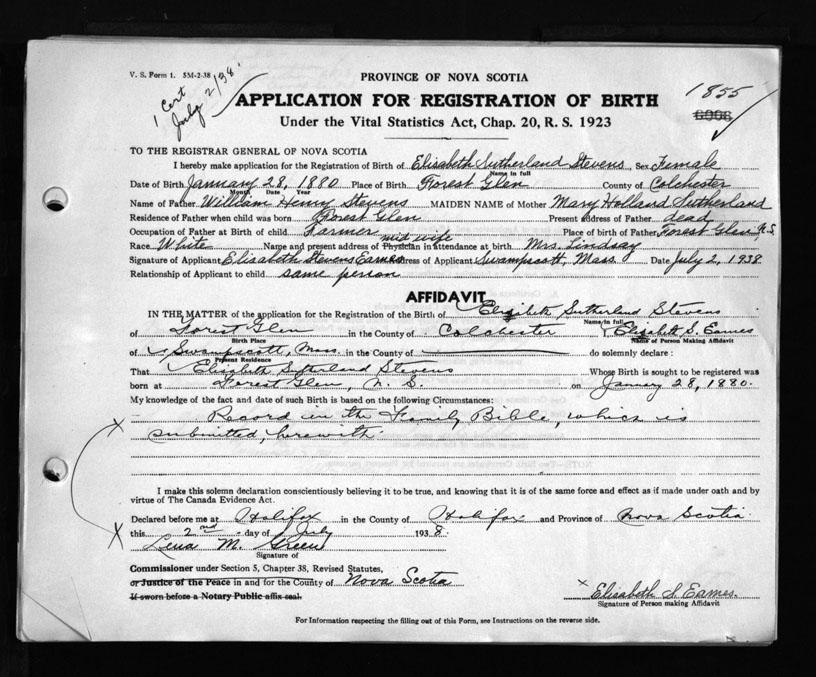 V. S. Form 1. 5M-2-38
1 Cert
July 2/38
PROVINCE OF NOVA SCOTIA
1855
APPLICATION FOR REGISTRATION OF BIRTH
Under the Vital Statistics Act, Chap. 20, R. S. 1923
TO THE REGISTRAR GENERAL OF NOVA SCOTIA
I hereby make application for the Registration of Birth of Elisabeth Sutherland Stevens Sex Female
Name in full
Date of Birth January 28, 1880 Place of Birth Forest Glen County of Colchester
Month Date Year
Name of Father William Henry Stevens MAIDEN NAME of Mother Mary Holland Sutherland
Residence of Father when child was born Forest Glen Present address of Father dead
Occupation of Father at Birth of child Farmer Place of birth of Father Forest Glen N.S.
mid wife
Race White Name and present address of Physician in attendance at birth Mrs. Lindsay
Signature of Applicant Elisabeth Stevens Eames Address of Applicant Swampscott, Mass. Date July 2, 1938
Relationship of Applicant to child same person
AFFIDAVIT
IN THE MATTER of the application for the Registration of the Birth of Elizibeth Sutherland Stevens
Name in full
of Forest Glen in the County of Colchester Elizabeth S. Eames
Birth Place Name of Person Making Affidavit
of Swampscott, Mass. in the County of do solemnly declare :
Present Residence
That Elizibeth Sutherland Stevens Whose Birth is sought to be registered was
born at Forest Glen, N. S. on January 28, 1880.
My knowledge of the fact and date of such Birth is based on the following Circumstances:
Record in the Family Bible, which is
submitted, herewith.
I make this solemn declaration conscientiously believing it to be true, and knowing that it is of the same force and effect as if made under oath and by
virtue of The Canada Evidence Act.
Declared before me at Halifax in the County of Halifax and Province of Nova Scotia
this 2nd day of July 1938.
Lena M. Green
Signature of
Commissioner under Section 5, Chapter 38, Revised Statutes,
or Justice of the Peace in and for the County of Nova Scotia
If sworn before a Notary Public affix seal.
X Elisabeth S. Eames.
Signature of Person making Affidavit
For Information respecting the filling out of this Form, see Instructions on the reverse side.